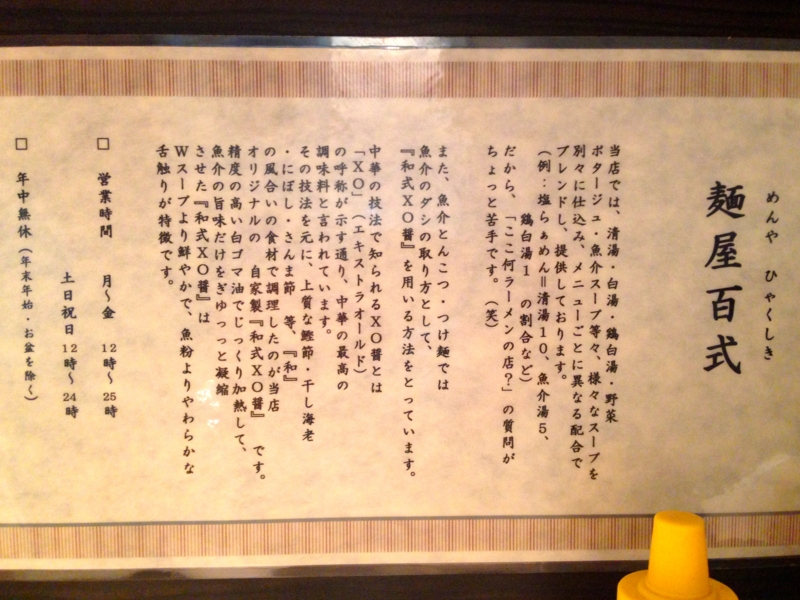 めんや ひゃくしき
麺屋百式
当店では、清湯・白湯・鶏白湯・野菜
ポタージュ・魚介スープ等々、様々なスープを
別々に仕込み、メニューごとに異なる配合で
ブレンドし、提供しております。
(例：塩らぁめん＝清湯10、魚介湯5、
鶏白湯1 の割合など)
だから、「ここ何ラーメンの店?」の質問が
ちょっと苦手です。(笑)
また、魚介とんこつ・つけ麺では
魚介のダシの取り方として、
『和式XO醤』を用いる方法をとっています。
中華の技法で知られるXO醤とは
「XO」(エキストラオールド)
の呼称が示す通り、中華の最高の
調味料と言われています。
その技法を元に、上質な鰹節・干し海老
・にぼし・さんま節 等、『和』
の風合いの食材で調理したのが当店
オリジナルの 自家製『和式XO醤』です。
精度の高い白ゴマ油でじっくり加熱して、
魚介の旨味だけをぎゆっっと凝縮
させた『和式XO醤』は
Wスープより鮮やかで、魚粉よりやわらかな
舌触りが特徴です。
□ 営業時間 月～金 12時～25時
土日祝日12時～24時
□ 年中無休(年末年始・お盆を除く)